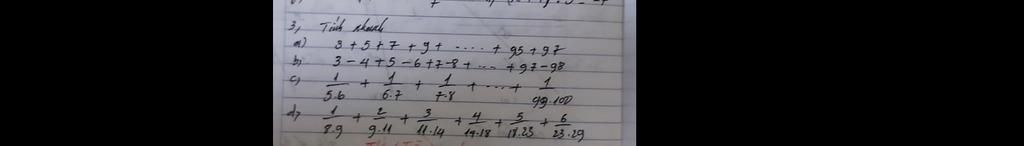 3, Tính nhanh
a) 3 + 5 + 7 + 9 + ..... + 95 + 97
b) 3 - 4 + 5 - 6 + 7 - 8 + ... + 97 - 98
c) 1/5.6 + 1/6.7 + 1/7.8 + ... + 1/99.100
d) 1/8.9 + 2/9.11 + 3/11.14 + 4/14.18 + 5/18.23 + 6/23.29